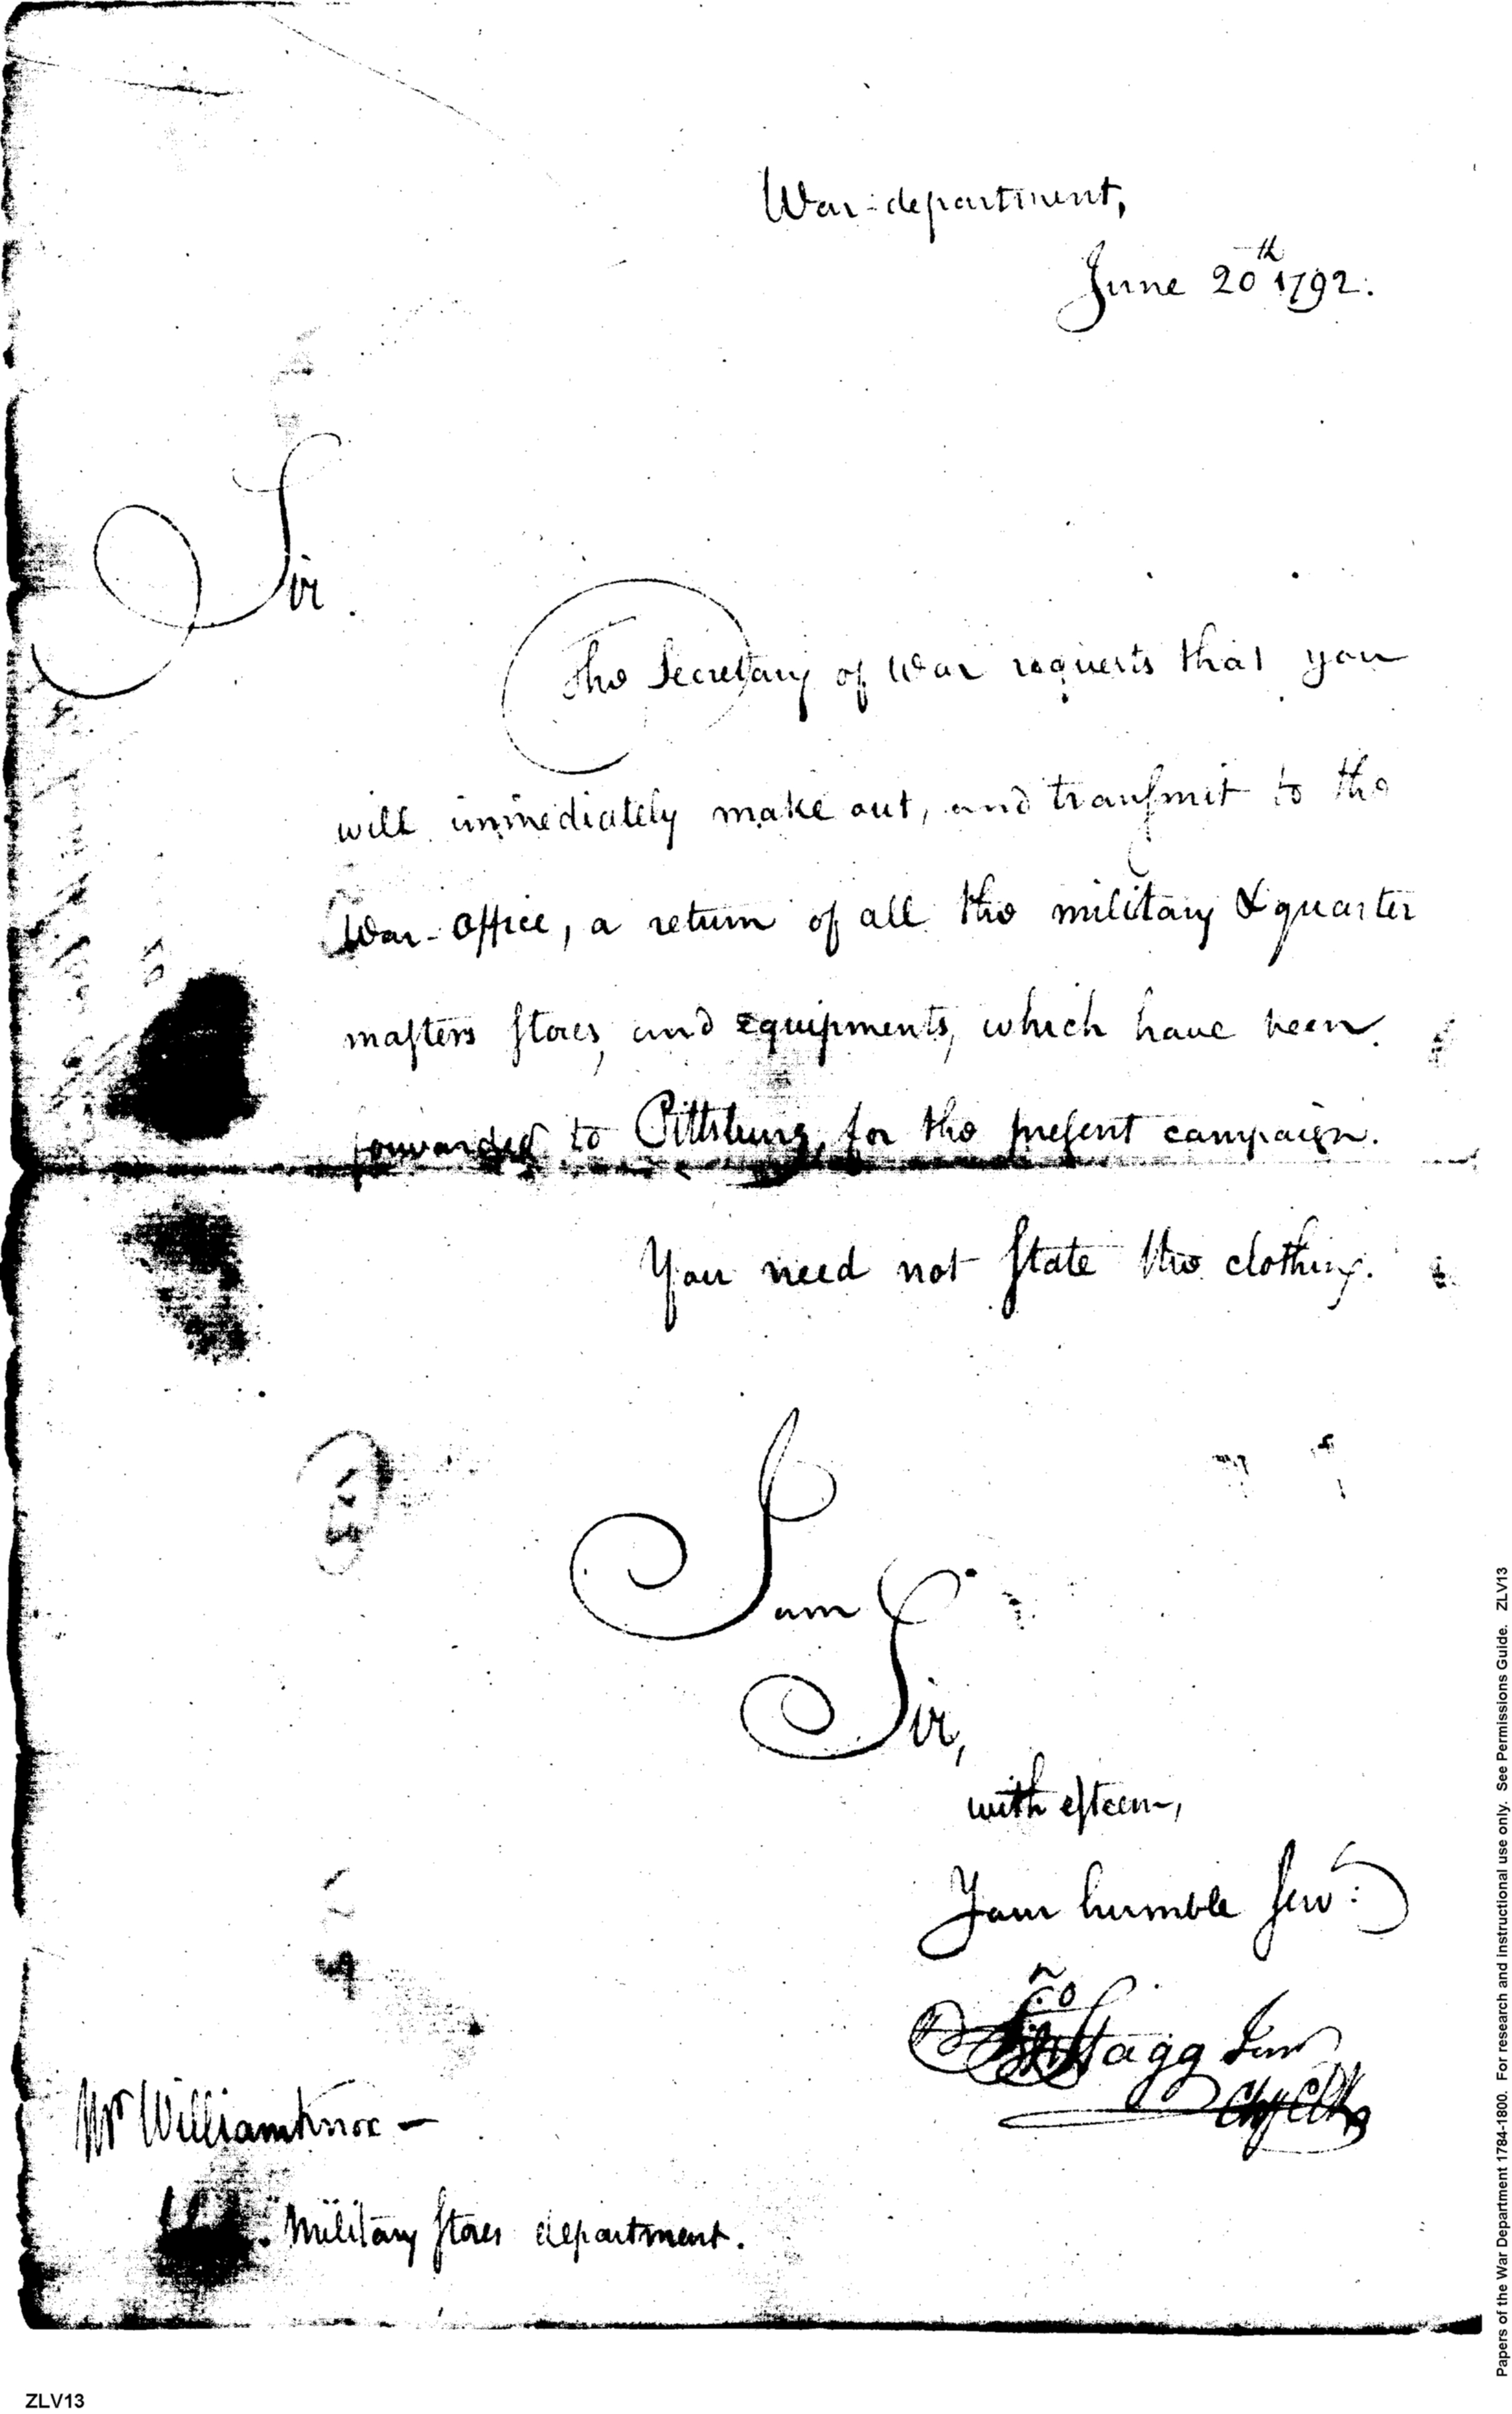 War-department,
June 20th 1792.
Sir.
The Secretary of War requests that you
will immediately make out, and transmit to the
War-Office, a return of all the military & quarter
masters stores, and equipments, which have been
forwarded to Pittsburg, for the present campaign.
You need not state the clothing.
I am
Sir,
with esteem,
Your humble servt.
Jno Stagg Junr
Chf Clk
Mr William Knox —
Military stores department.
Papers of the War Department 1784-1800. For research and instructional use only. See Permissions Guide. ZLV13
ZLV13